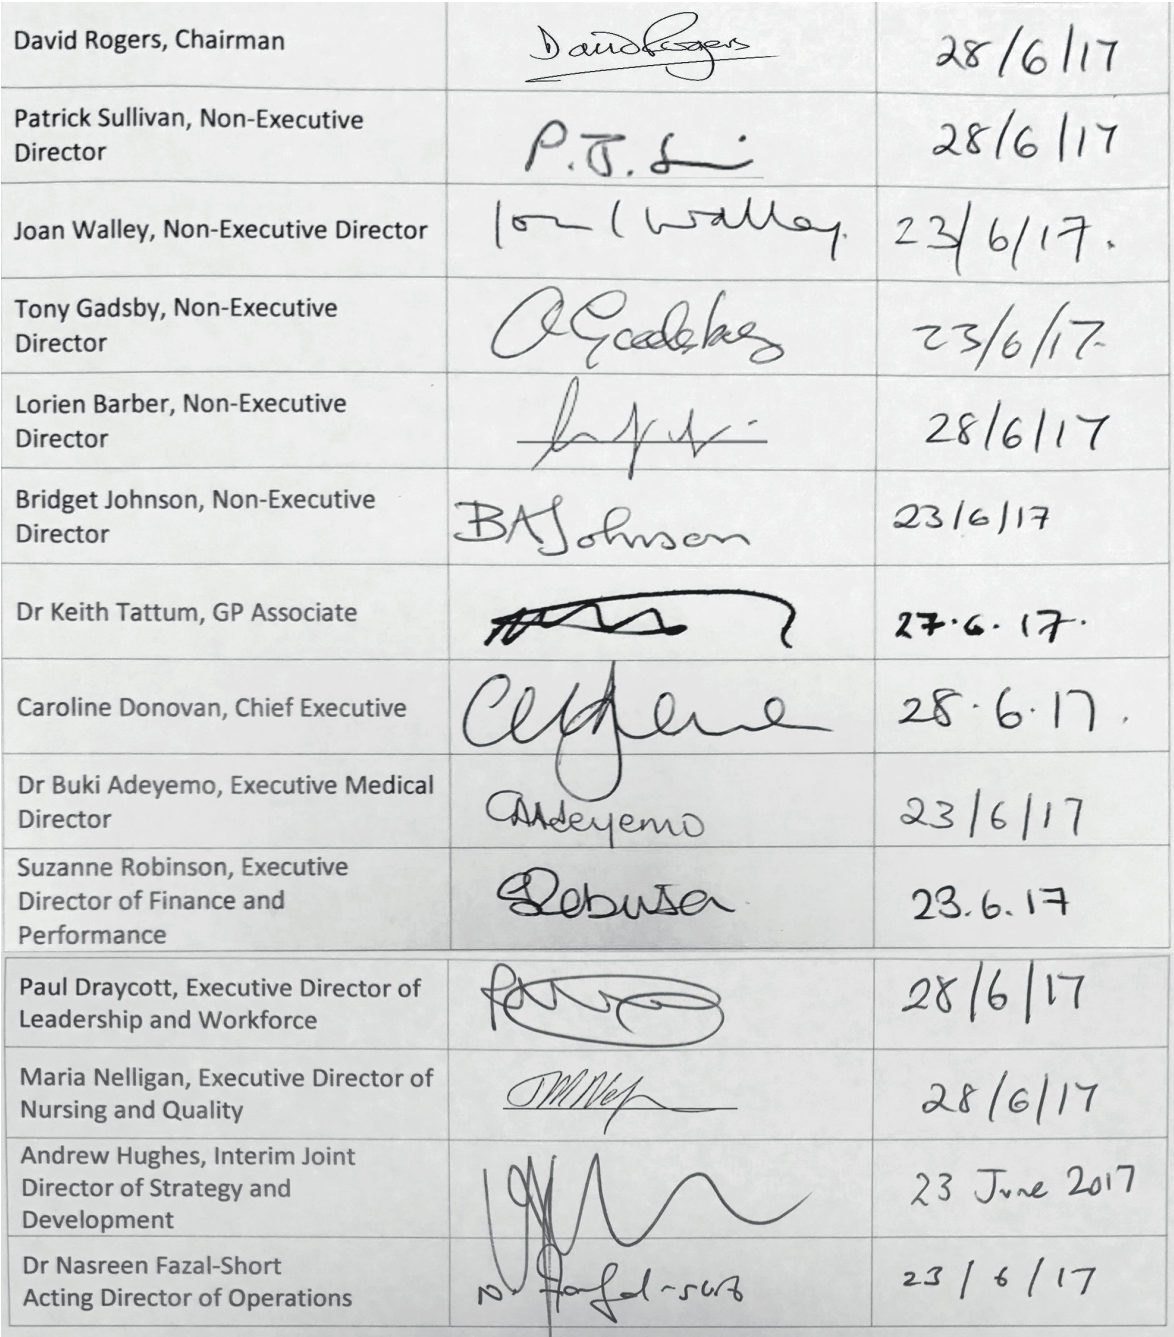 David Rogers, Chairman David Rogers 28/6/17
Patrick Sullivan, Non-Executive
Director P.J. 28/6/17
Joan Walley, Non-Executive Director Joan Walley. 23/6/17.
Tony Gadsby, Non-Executive
Director A Gadsby 23/6/17
Lorien Barber, Non-Executive
Director 28/6/17
Bridget Johnson, Non-Executive
Director BAJohnson 23/6/17
Dr Keith Tattum, GP Associate 27.6.17.
Caroline Donovan, Chief Executive 28.6.17.
Dr Buki Adeyemo, Executive Medical
Director Adeyemo 23/6/17
Suzanne Robinson, Executive
Director of Finance and
Performance 23.6.17
Paul Draycott, Executive Director of
Leadership and Workforce 28/6/17
Maria Nelligan, Executive Director of
Nursing and Quality 28/6/17
Andrew Hughes, Interim Joint
Director of Strategy and
Development 23 June 2017
Dr Nasreen Fazal-Short
Acting Director of Operations N. Fazal-Short 23/6/17